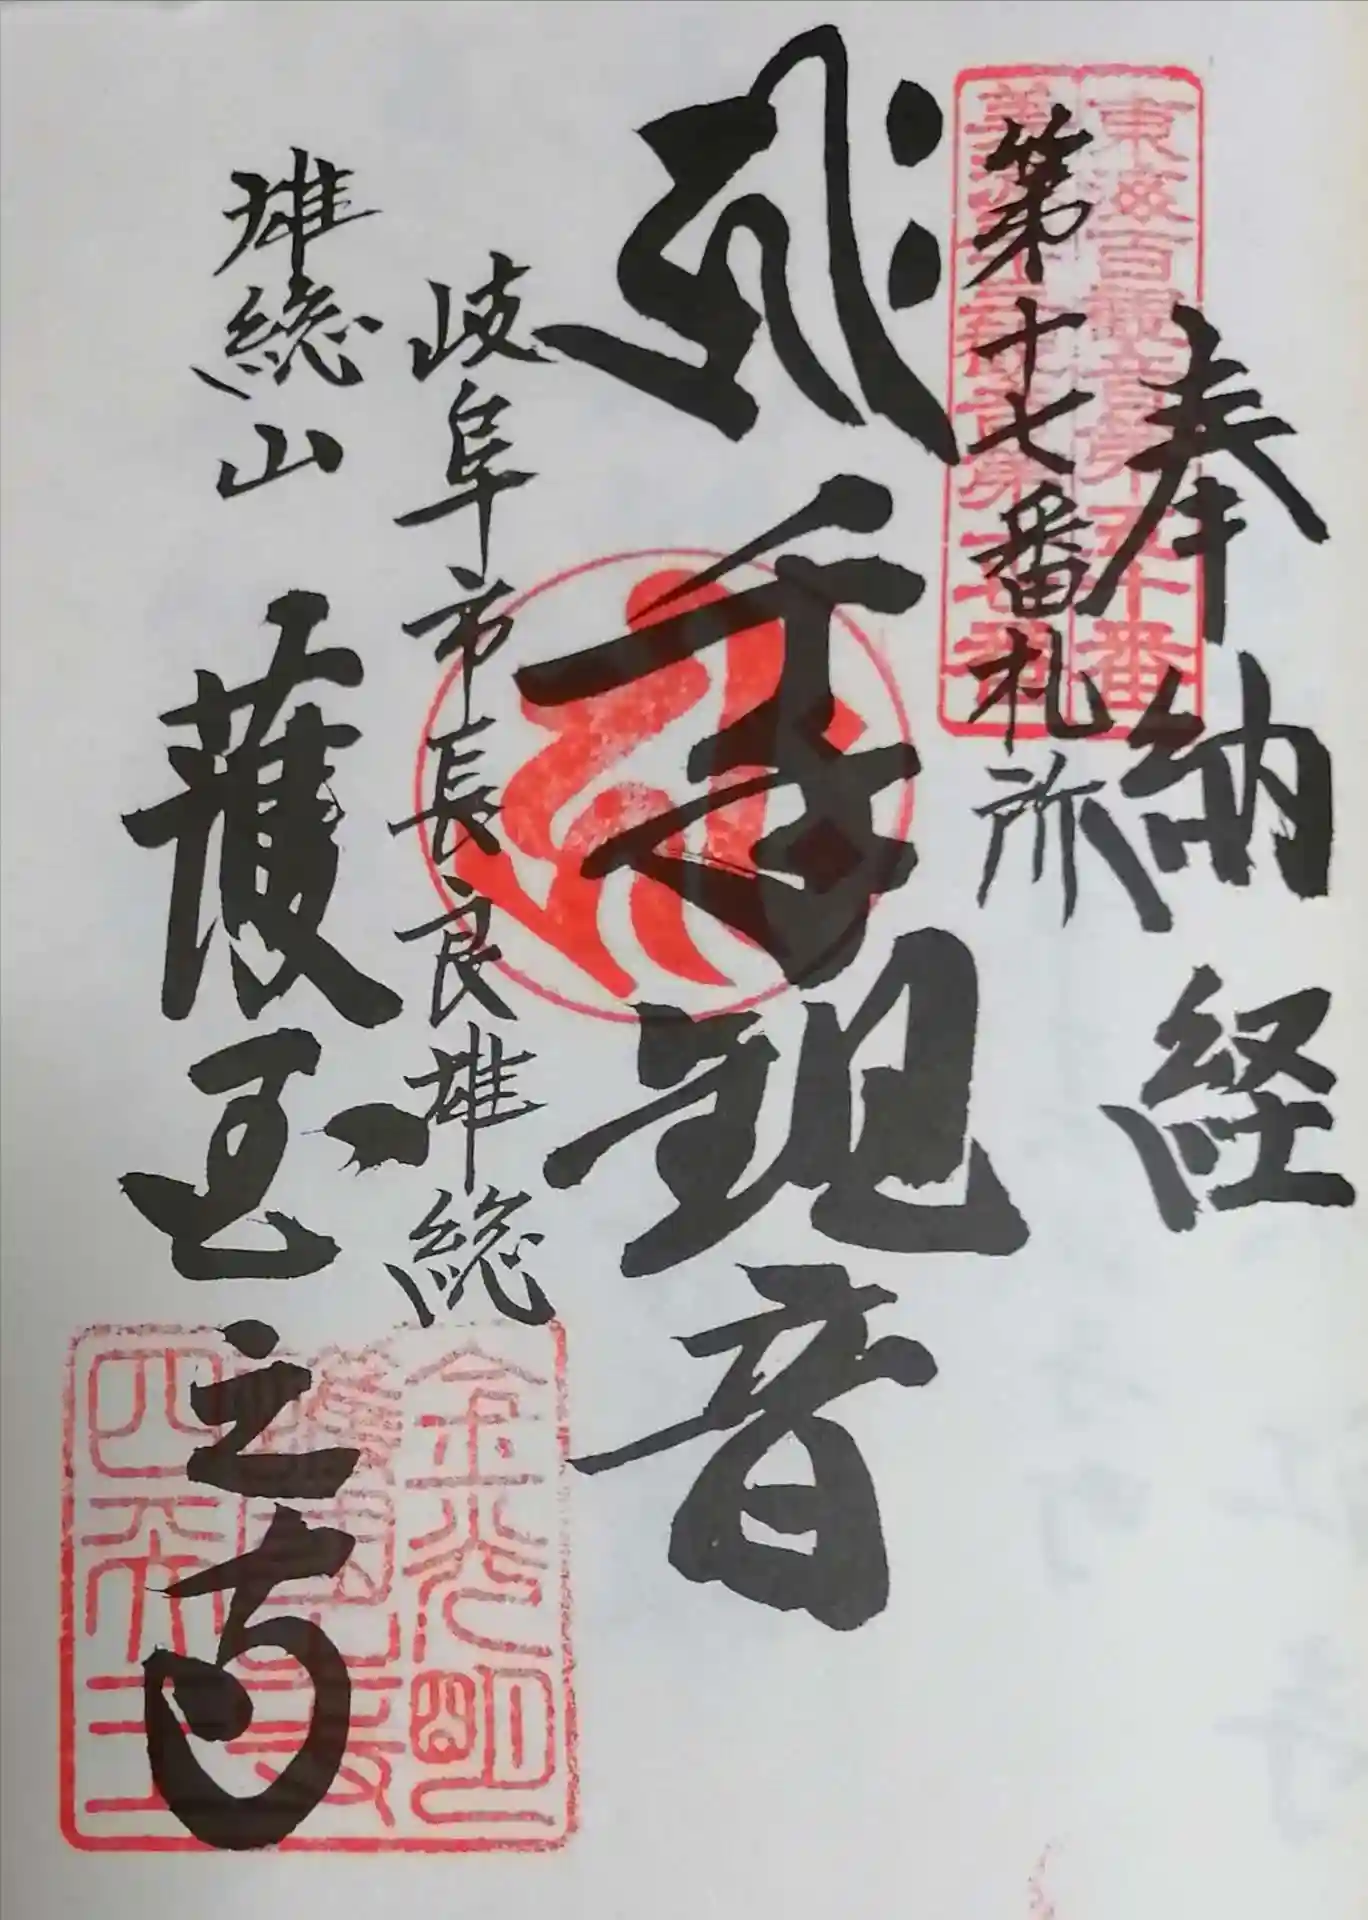 奉納経
東海百観音第五十番
美濃三十三観音第十七番
第十七番札所
千手観音
岐阜市長良雄総
雄総山
護国之寺
金光明
護国
四天王